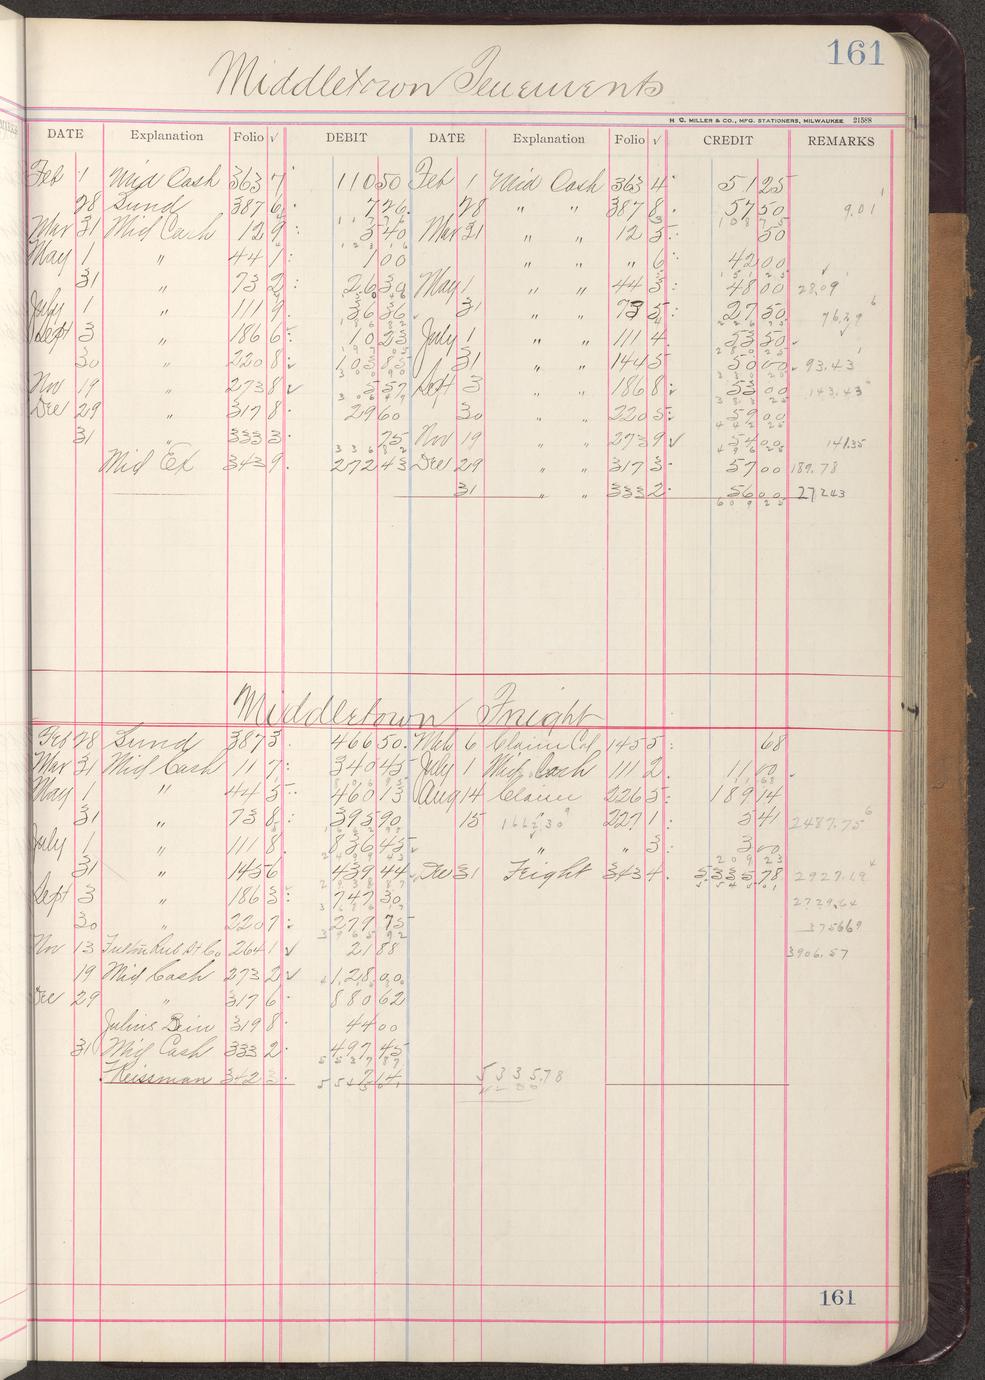 161
Middletown Tenements
H. C. MILLER & CO., MFG. STATIONERS, MILWAUKEE 21588
DATE Explanation Folio √ DEBIT DATE Explanation Folio √ CREDIT REMARKS
Feb 1 Mid Cash 363 7 110 50 Feb 1 Mid Cash 363 4 51 25
28 Sund 387 6 7 26 28 " " 387 8 57 50 9.01
Mar 31 Mid Cash 12 9 5 40 Mar 31 " " 12 5 50
May 1 " 44 1 1 00 " " 6 42 00
31 " 73 2 26 30 May 1 " " 44 3 48 00 28.09
July 1 " 111 9 36 36 31 " " 73 5 27 50 76.29
Sept 3 " 186 6 10 23 July 1 " " 111 4 53 50
30 " 220 8 103 85 31 " " 144 5 50 00 93.43
Nov 19 " 273 8 √ 5 57 Sept 3 " " 186 8 53 00 143.43
Dec 29 " 317 8 29 60 30 " " 220 5 59 00
31 " 333 3 75 Nov 19 " " 273 9 √ 54 00 141.35
Mid Ex 343 9 272 43 Dec 29 " " 317 3 57 00 189.78
31 " " 333 2 56 00 272.43
Middletown Freight
Feb 28 Sund 387 3 466 50 Mch 6 Claim Col 145 5 68
Mar 31 Mid Cash 11 7 340 45 July 1 Mid Cash 111 2 11 00
May 1 " 44 5 460 13 Aug 14 Claim 226 5 189 14
31 " 73 8 395 90 15 227 1 5 41 2487.75
July 1 " 111 8 836 45 " " 3 3 00
31 " 145 6 439 44 Dec 31 Freight 343 4 5335 78 2927.19
Sept 3 " 186 3 747 30
30 " 220 7 279 75 3756.69
Nov 13 264 1 √ 21 88 3906.57
19 Mid Cash 273 2 √ 128 00
Dec 29 " 317 6 880 62
Julius Bein 319 8 44 00
31 Mid Cash 333 2 497 45
Reissman 342 3 5335.78
161